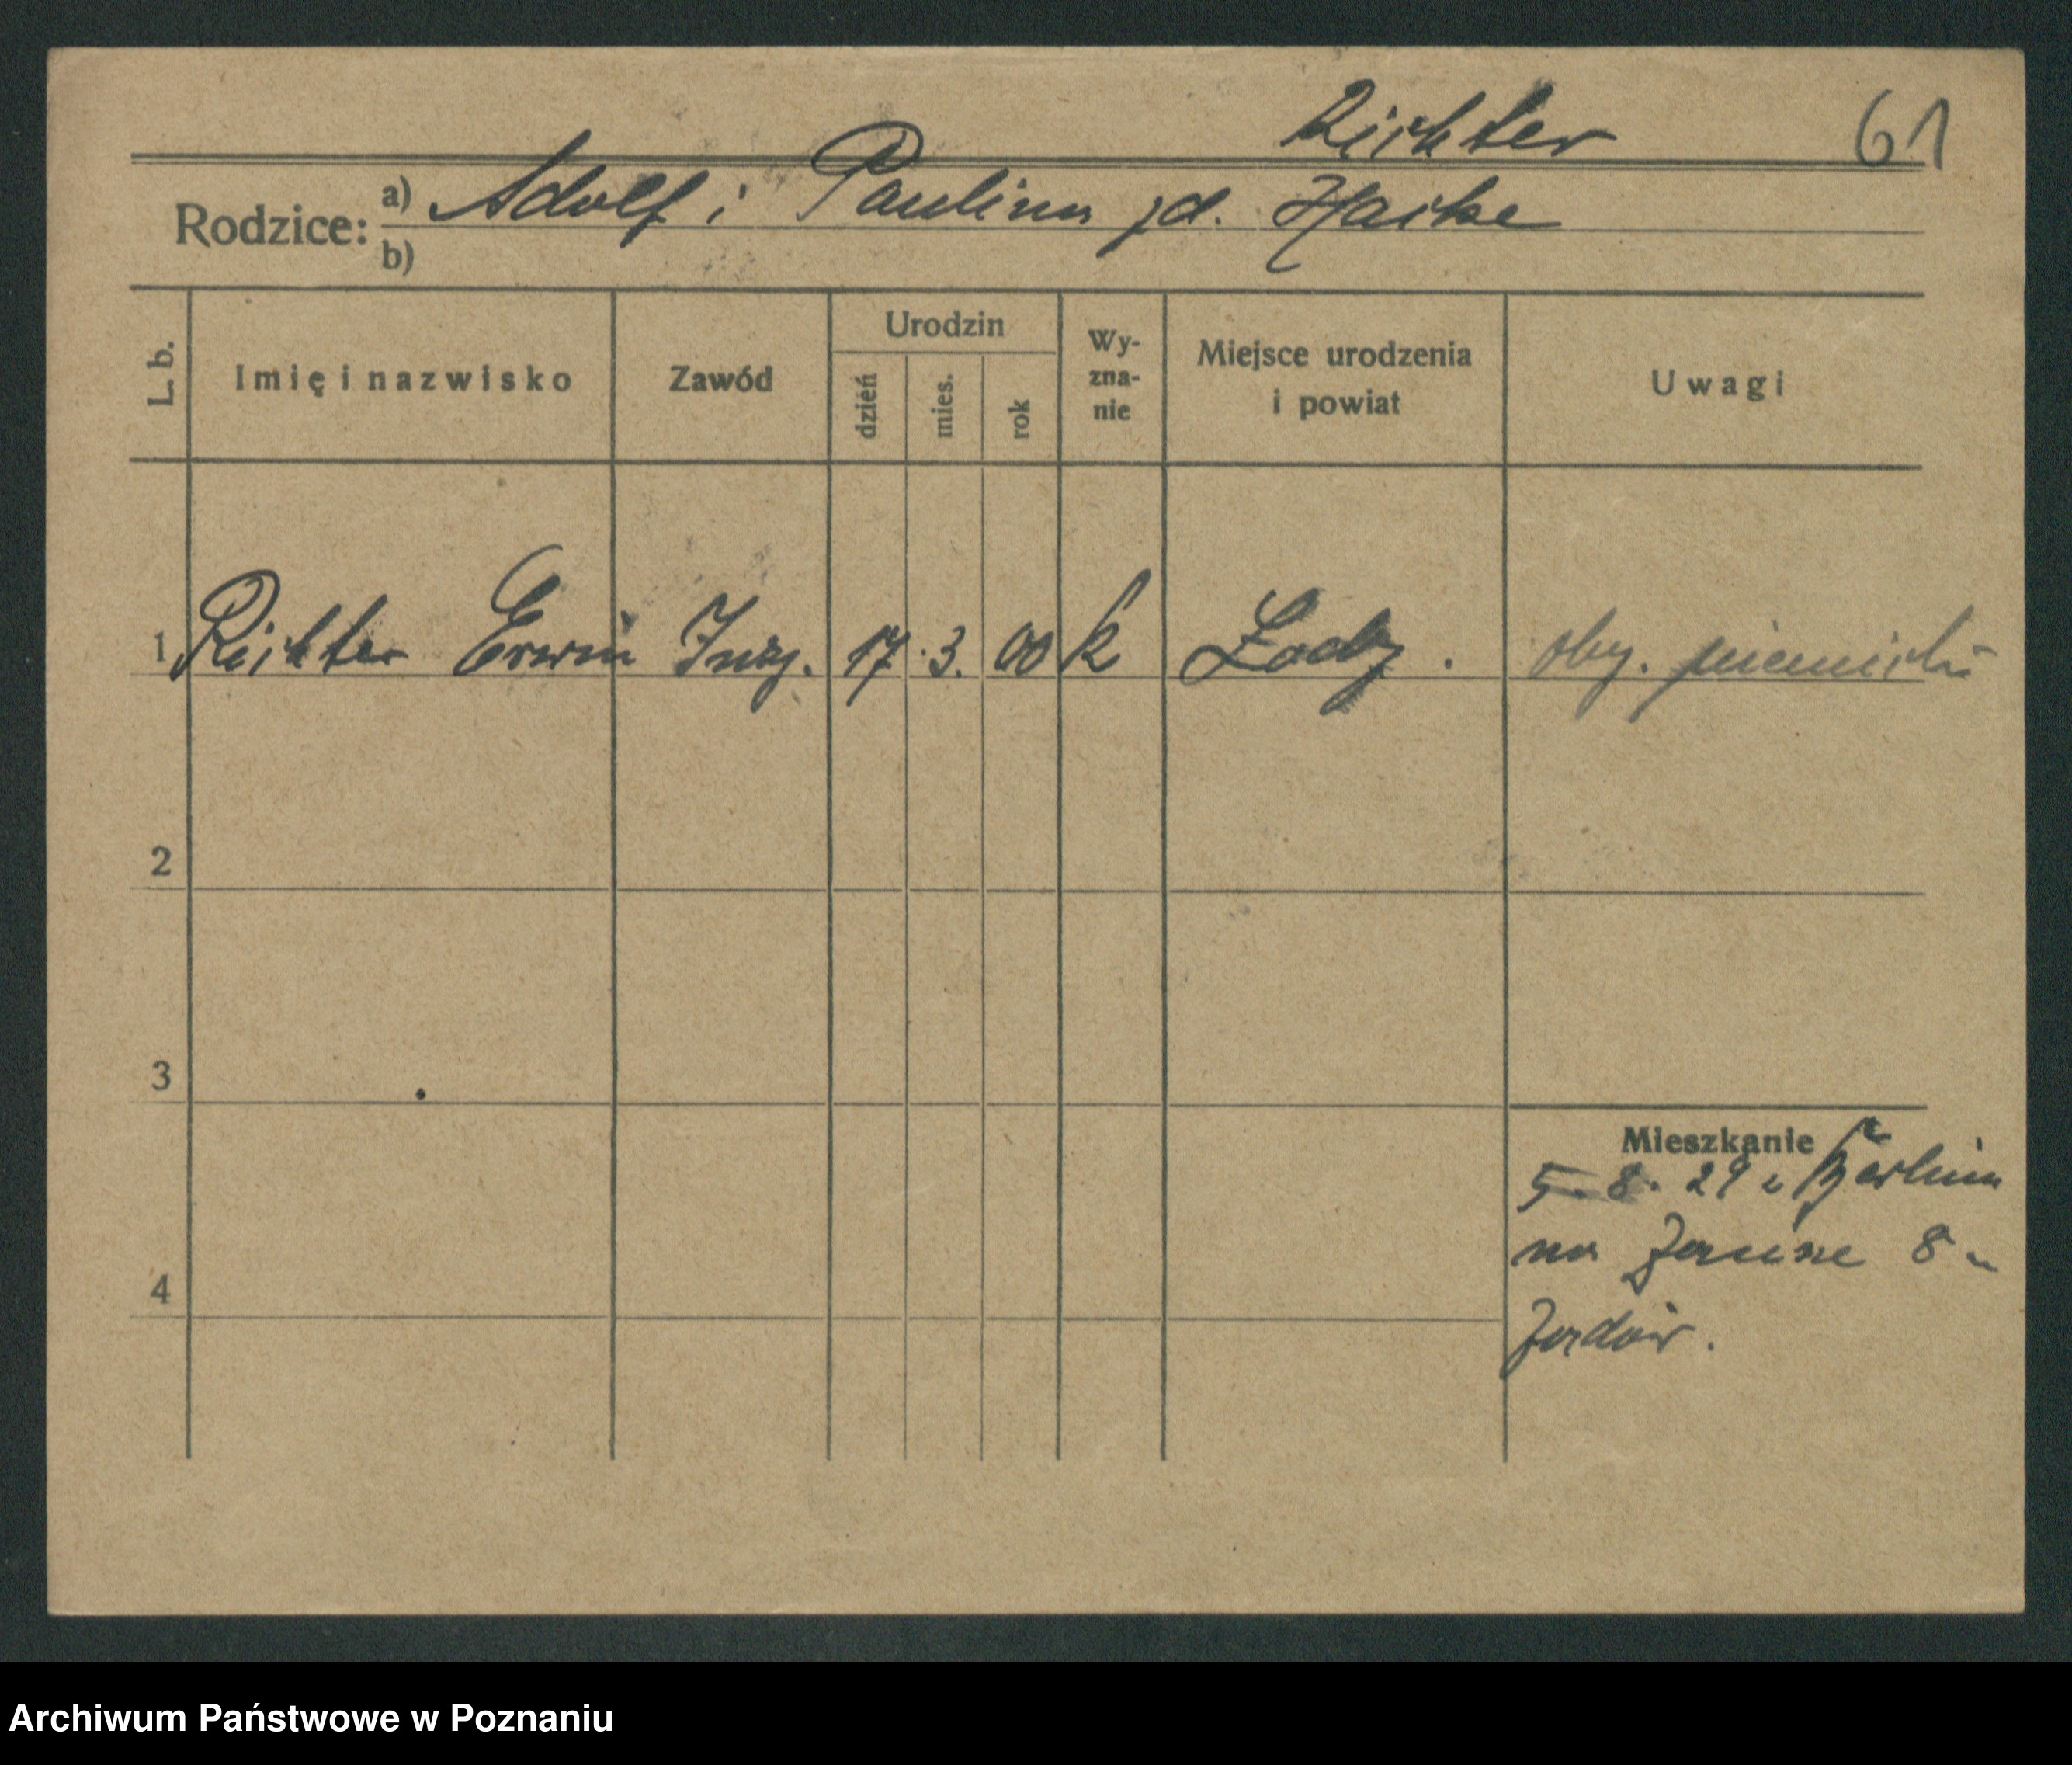 Richter 61
Rodzice: a) Adolf i Paulina zd. Hacke
b)
L. b. Imię i nazwisko Zawód Urodzin dzień mies. rok Wy-zna-nie Miejsce urodzenia i powiat Uwagi
1 Richter Erwin Inż. 17. 3. 00 k Łodz. oby. niemiecki
2
3
Mieszkanie
5. 8. 29 z Berlina
na 8
4
Archiwum Państwowe w Poznaniu